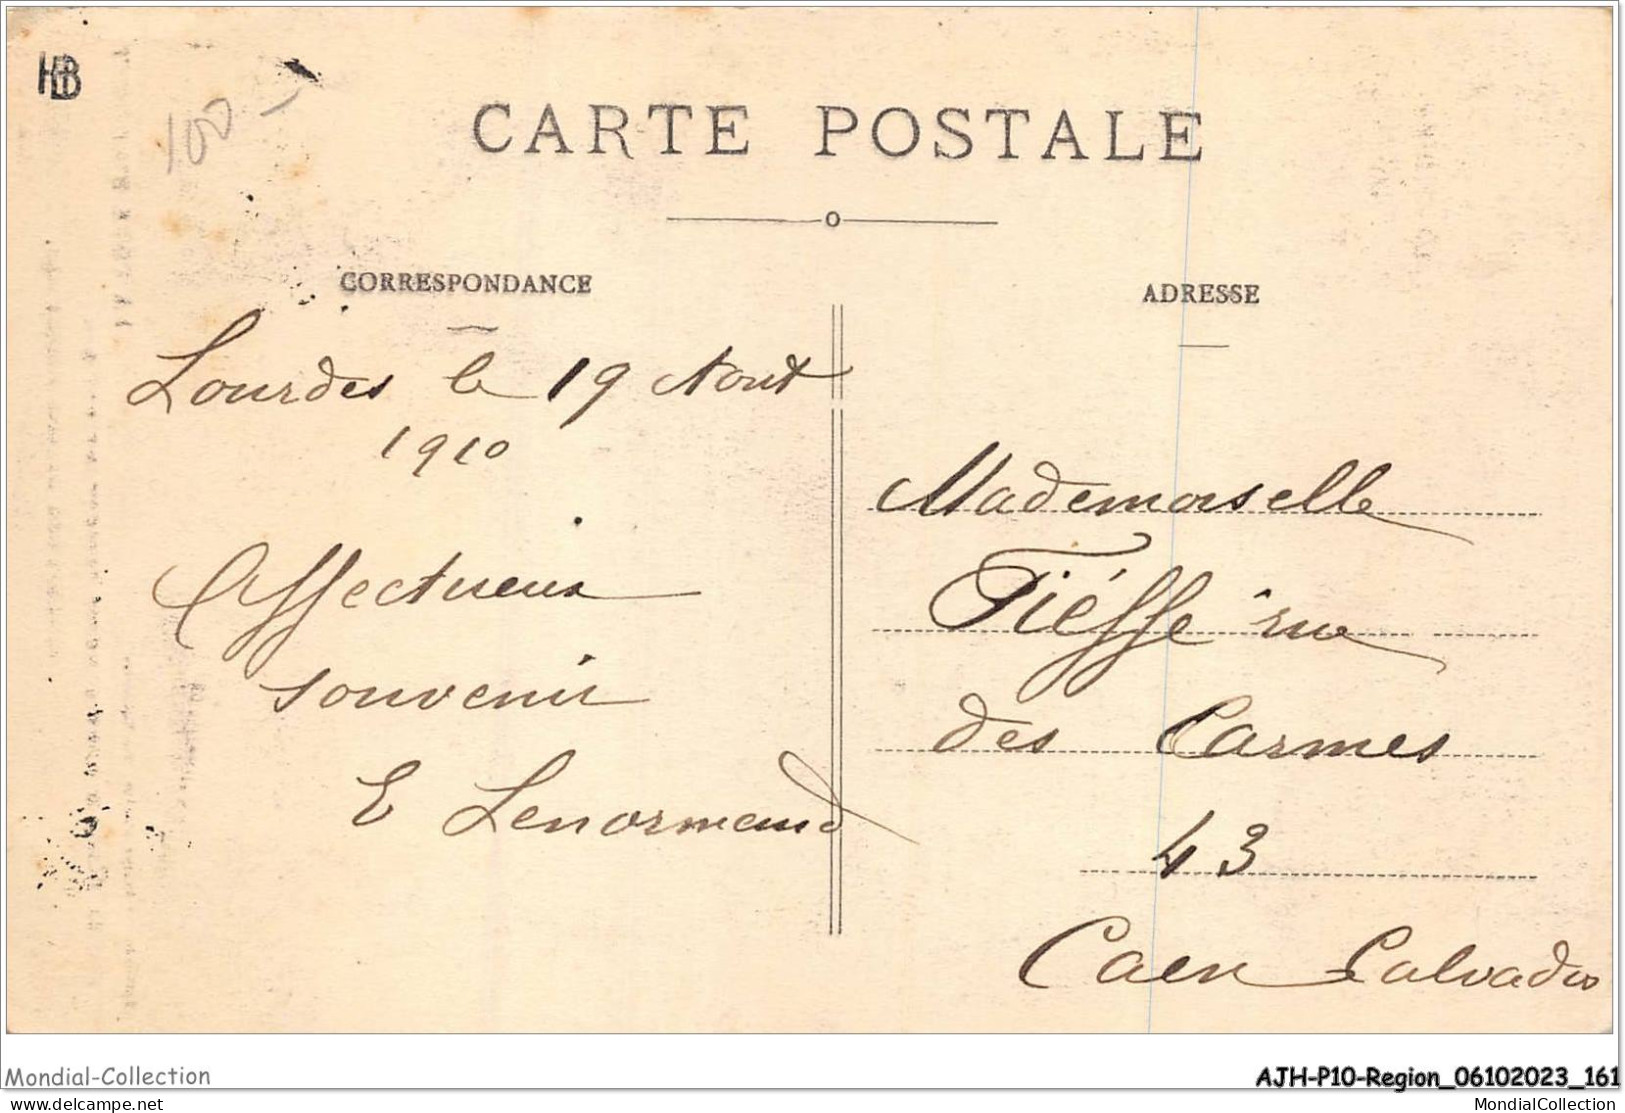 HB
100
CARTE POSTALE
CORRESPONDANCE
Lourdes le 19 Aout
1910
Affectueux
souvenir
E Lenormand
ADRESSE
Mademoiselle
Tiéffe rue
des Carmes
43
Caen Calvados
Mondial-Collection
AJH-P10-Region_06102023_161
delcampe.net
MondialCollection